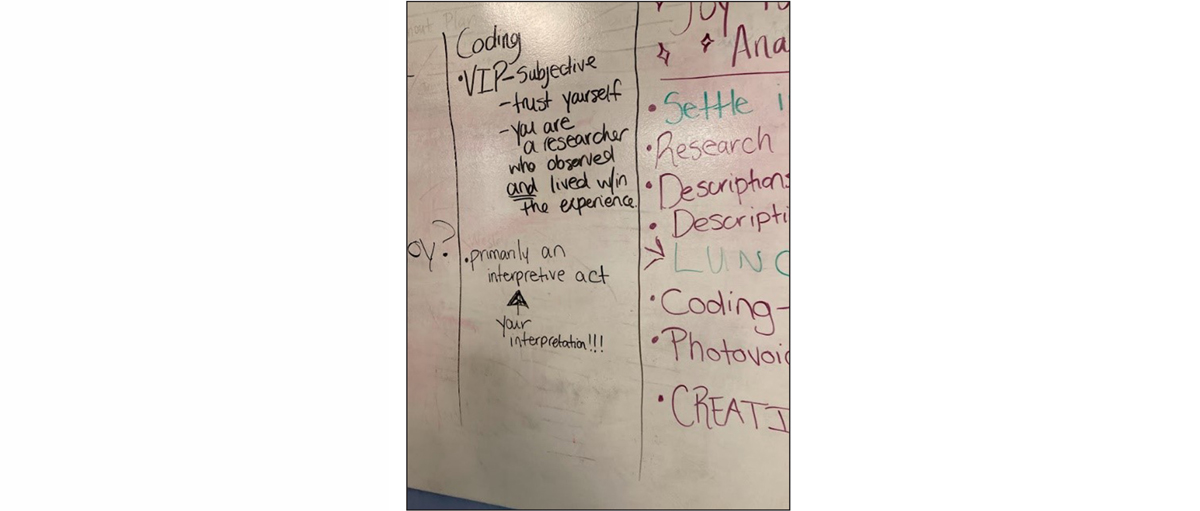 Coding
•VIP-Subjective
-trust yourself
-you are
a researcher
who observed
and lived w/in
the experience.
oy?
•primarily an
interpretive act
your
interpretation!!!
Joy
Ana
•Settle i
•Research
•Descriptions
•Descripti
LUNC
•Coding-
•Photovoic
•CREATI